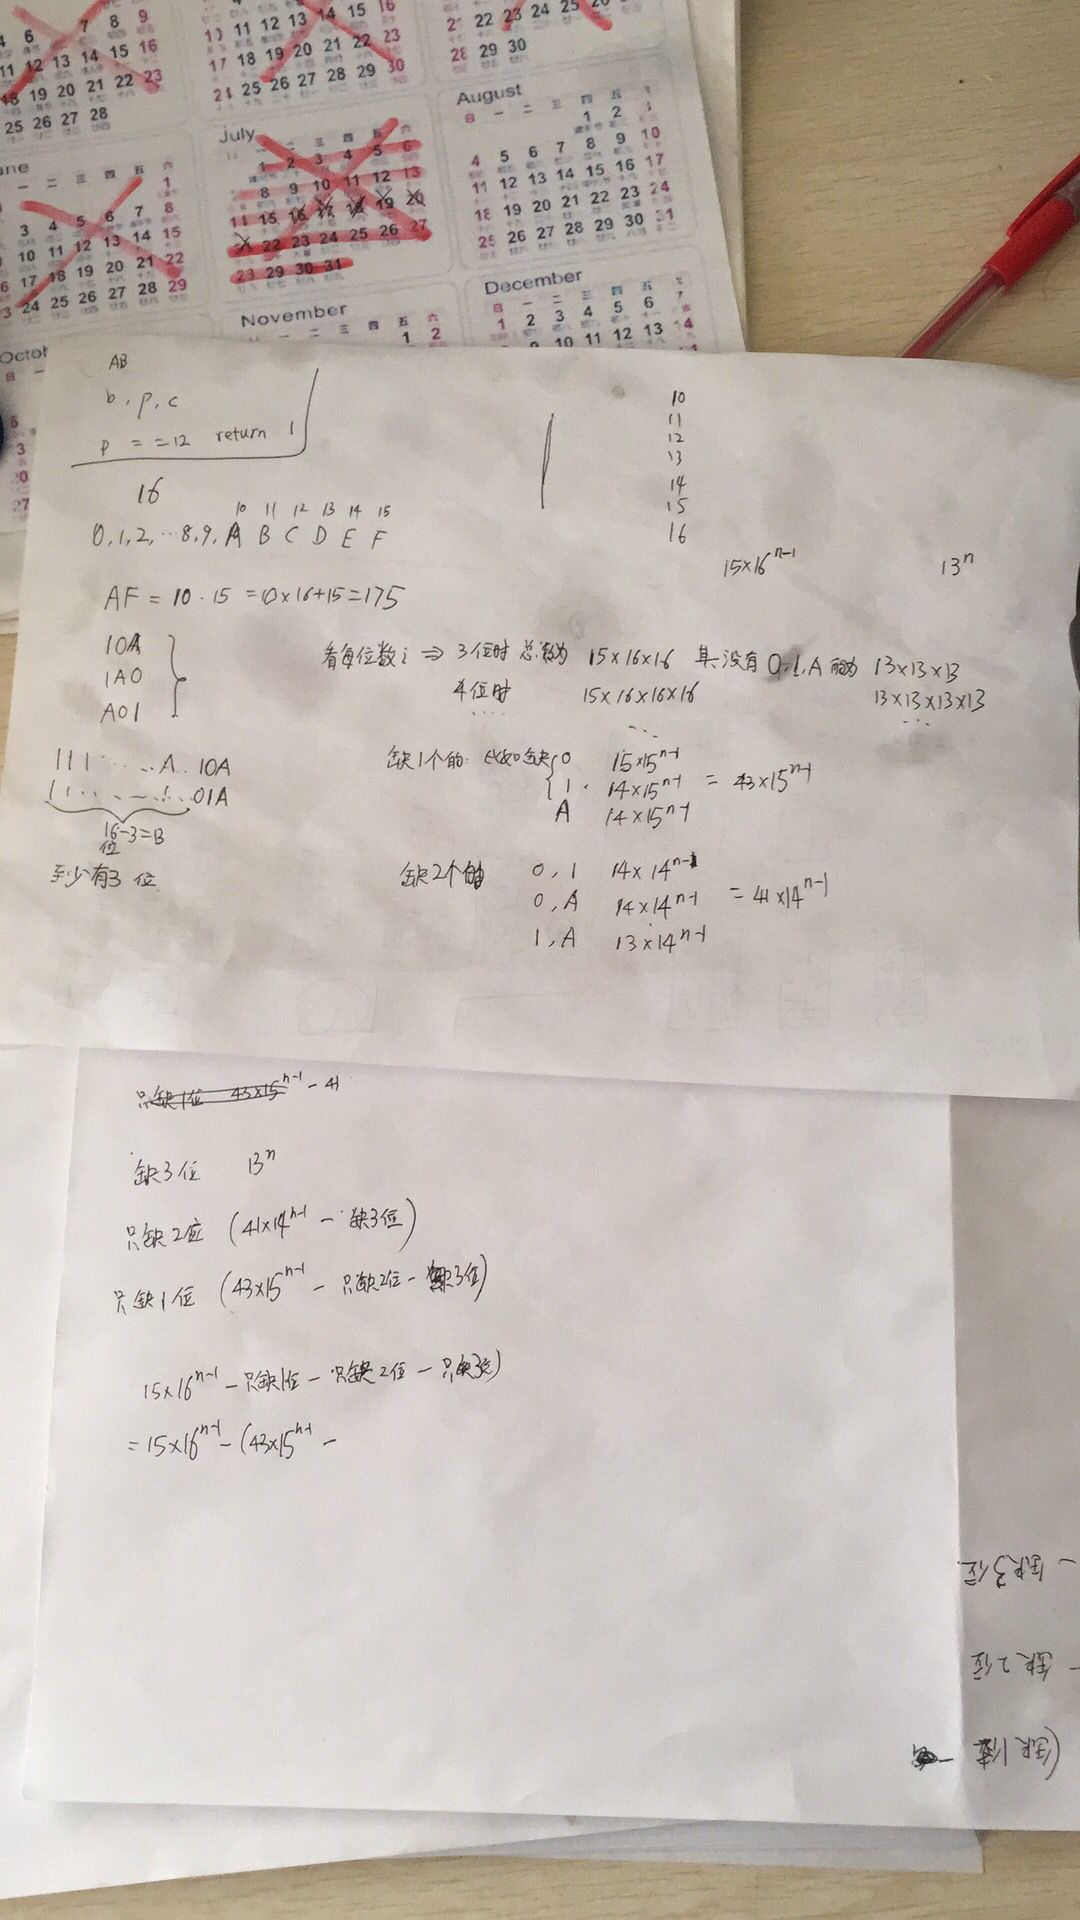 8 9
11 12 13 14 15 16
18 19 20 21 22 23
25 26 27 28
11 12 13 14 15 16
17 18 19 20 21 22 23
24 25 26 27 28 29 30
22 23 24 25 26
28 29 30
July
二 三 四 五 六
1 2 3 4 5 6
8 9 10 11 12 13
15 16 17 18 19 20
22 23 24 25 26 27
29 30 31
August
日 一 二 三 四 五
1 2 3
4 5 6 7 8 9 10
11 12 13 14 15 16 17
18 19 20 21 22 23 24
25 26 27 28 29 30 31
une
一 二 三 四 五 六
1
3 4 5 6 7 8
10 11 12 13 14 15
17 18 19 20 21 22
24 25 26 27 28 29
November
一 二 三 四 五 六
1 2
December
1 2 3 4 5 6 7
9 10 11 12 13 14
Octo
AB
b, p, c
p = =12 return 1
16
10 11 12 13 14 15
0,1,2,…8,9, A B C D E F
AF = 10·15 =10×16+15=175
10A
1A0
A01
111……A..10A
11……1..01A
16-3=13
位
至少有3位
10
11
12
13
14
15
16
15×16^{n-1} 13^n
看每位数i ⇒ 3位时 总数为 15×16×16 其没有0,1,A 的为 13×13×13
4位时 15×16×16×16 13×13×13×13
…… …… ……
缺1个的: 比如缺 0 15×15^{n-1}
1 14×15^{n-1} = 43×15^{n-1}
A 14×15^{n-1}
缺2个的 0,1 14×14^{n-1}
0,A 14×14^{n-1} =41×14^{n-1}
1,A 13×14^{n-1}
只缺1位 43×15^{n-1} -41
缺3位 13^n
只缺2位 (41×14^{n-1} - 缺3位)
只缺1位 (43×15^{n-1} - 只缺2位 - 缺3位)
15×16^{n-1} - 只缺1位 - 只缺2位 - 只缺3位)
=15×16^{n-1} - (43×15^{n-1} -
(缺1位 -
- 缺2位
- 缺3位